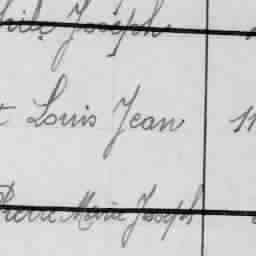 Joseph
Louis Jean 11
Pierre Marie Joseph